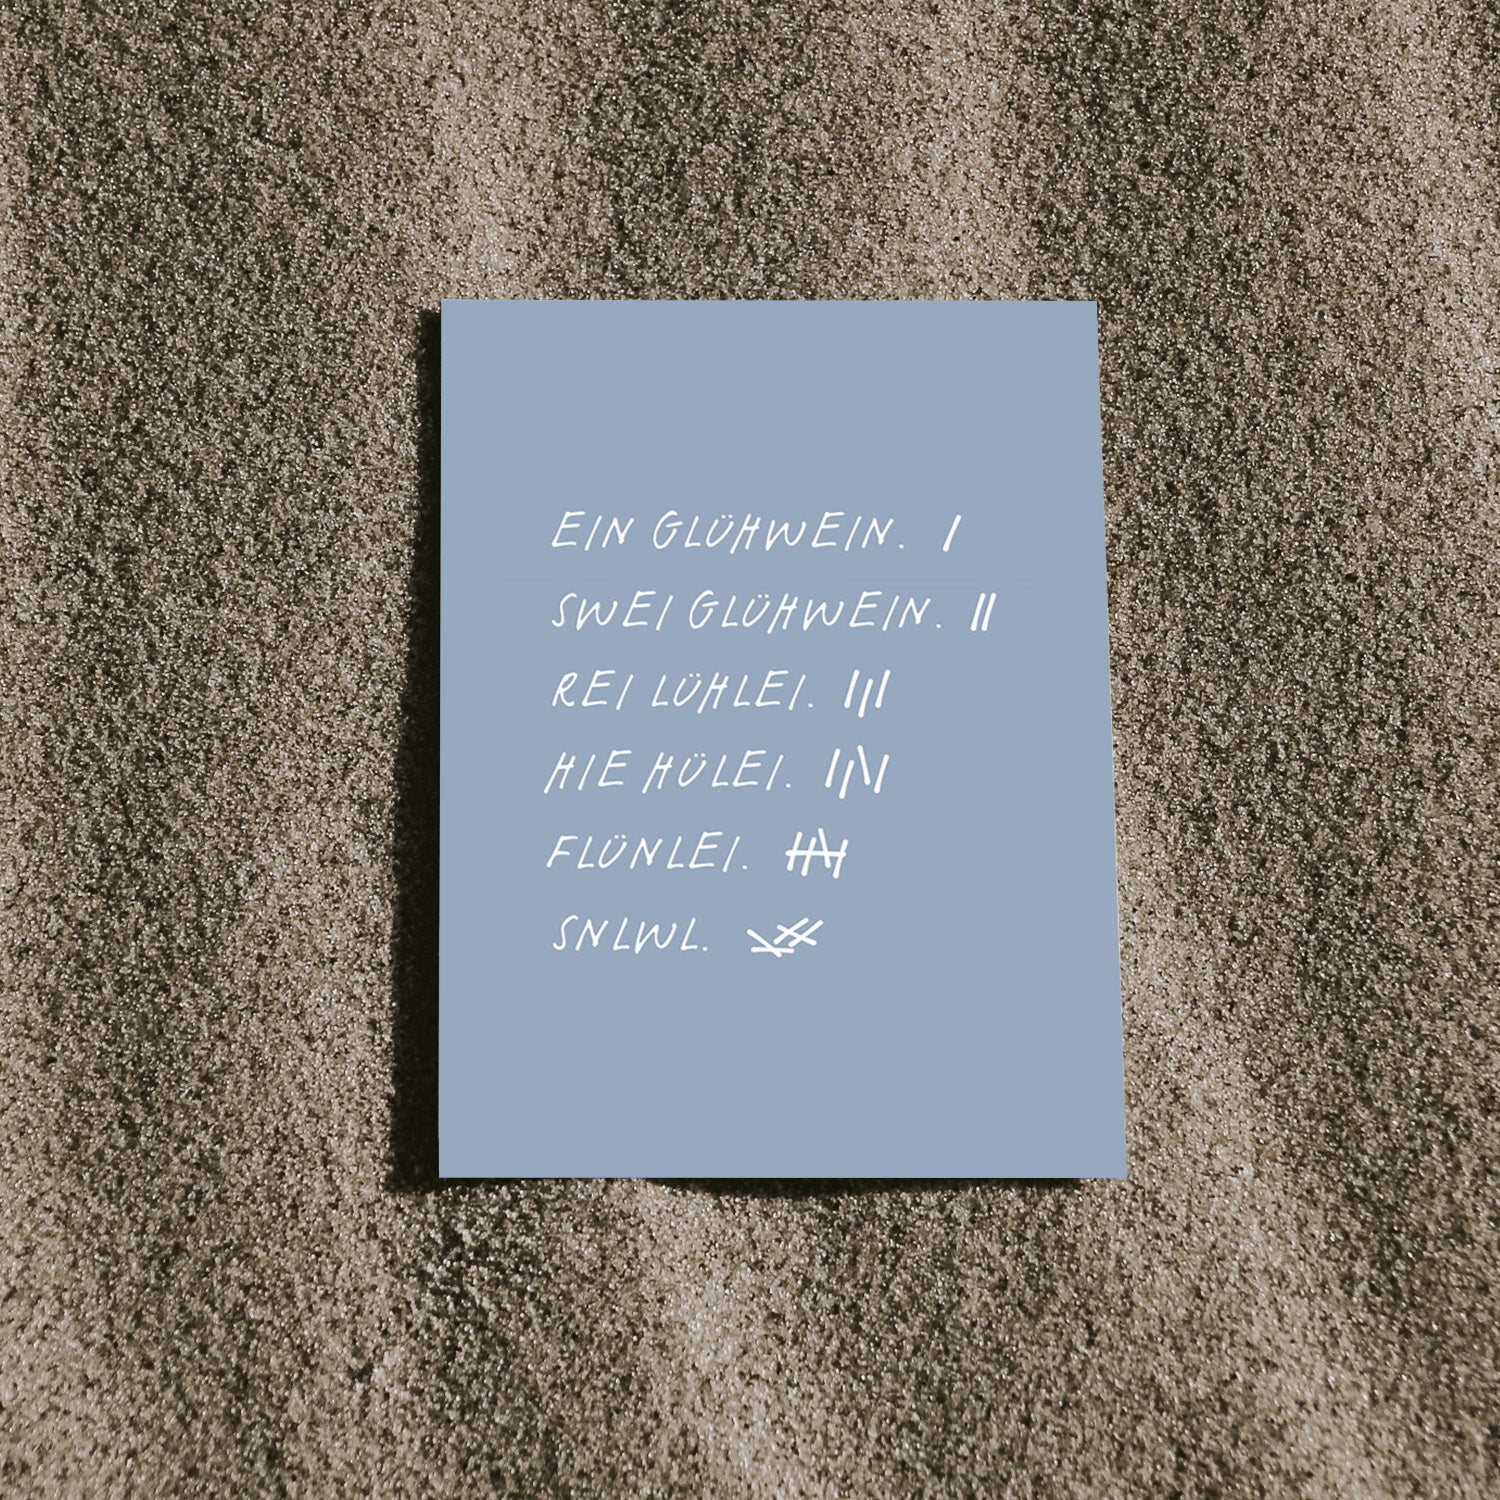 EIN GLÜHWEIN. |
SWEI GLÜHWEIN. ||
REI LÜHLEI. |||
HIE HÜLEI. ||||
FLÜNLEI.
SNLWL.